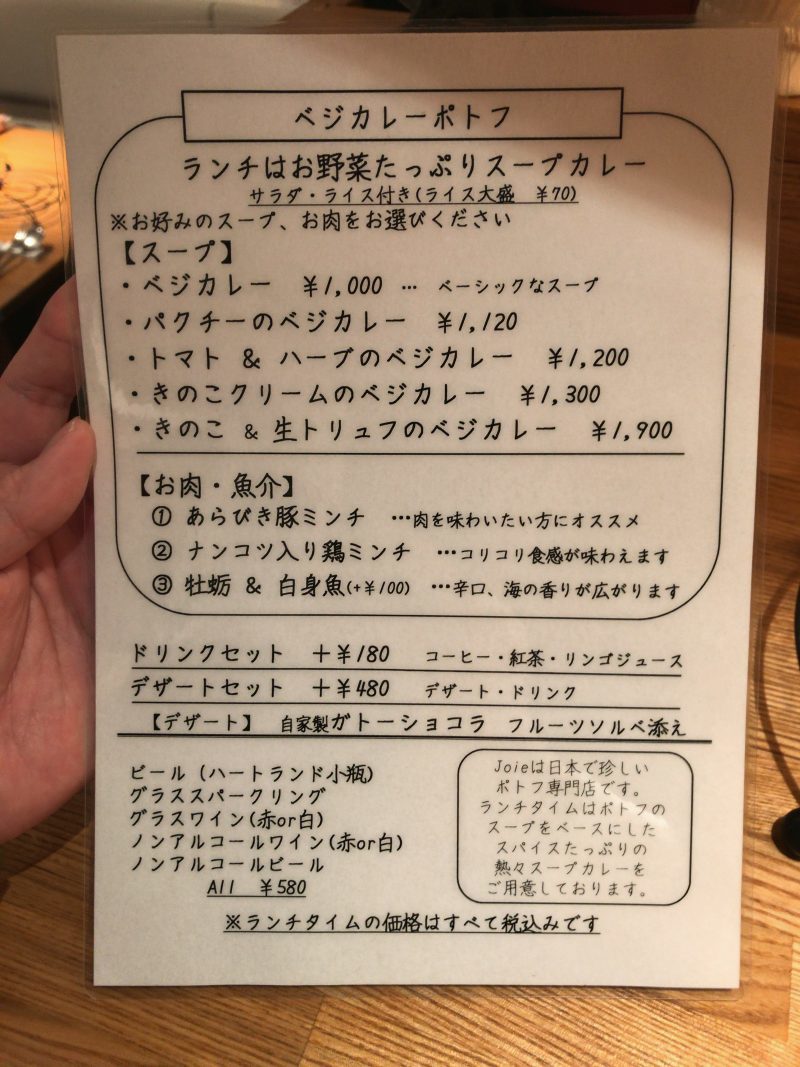 ベジカレーポトフ
ランチはお野菜たっぷりスープカレー
サラダ・ライス付き(ライス大盛 ￥70)
※お好みのスープ、お肉をお選びください
【スープ】
・ベジカレー ￥1,000 … ベーシックなスープ
・パクチーのベジカレー ￥1,120
・トマト & ハーブのベジカレー ￥1,200
・きのこクリームのベジカレー ￥1,300
・きのこ & 生トリュフのベジカレー ￥1,900
【お肉・魚介】
① あらびき豚ミンチ …肉を味わいたい方にオススメ
② ナンコツ入り鶏ミンチ …コリコリ食感が味わえます
③ 牡蛎 & 白身魚(+￥100) …辛口、海の香りが広がります
ドリンクセット ＋￥180 コーヒー・紅茶・リンゴジュース
デザートセット ＋￥480 デザート・ドリンク
【デザート】 自家製ガトーショコラ フルーツソルベ添え
ビール (ハートランド小瓶)
グラススパークリング
グラスワイン(赤or白)
ノンアルコールワイン(赤or白)
ノンアルコールビール
All ￥580
Joieは日本で珍しい
ポトフ専門店です。
ランチタイムはポトフの
スープをベースにした
スパイスたっぷりの
熱々スープカレーを
ご用意しております。
※ランチタイムの価格はすべて税込みです